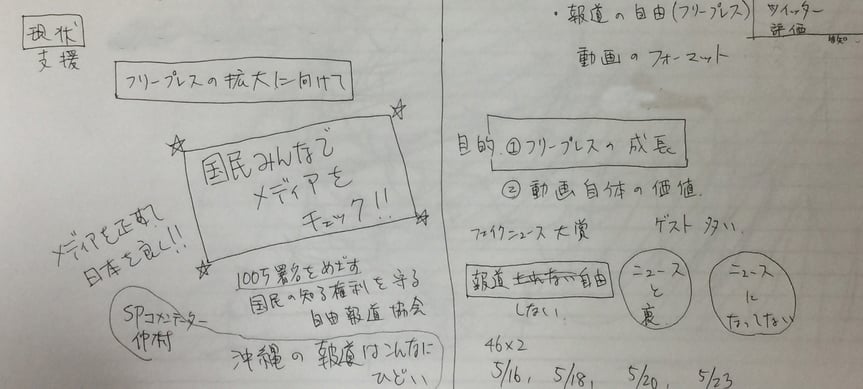 現状
支援
フリープレスの拡大に向けて
国民みんなで
メディアを
チェック!!
メディアを正して
日本を良し!!
100万署名をめざす
国民の知る権利を守る
自由報道協会
SPコメンテーター
仲村
沖縄の報道はこんなに
ひどい
・報道の自由(フリープレス)
ツイッター
評価
動画のフォーマット
目的 ①フリープレスの成長
②動画自体の価値
フェイクニュース大賞 ゲスト多い
報道 自由
しない
ニュース
と
裏
ニュース
に
なってない
46×2
5/16, 5/18, 5/20, 5/23